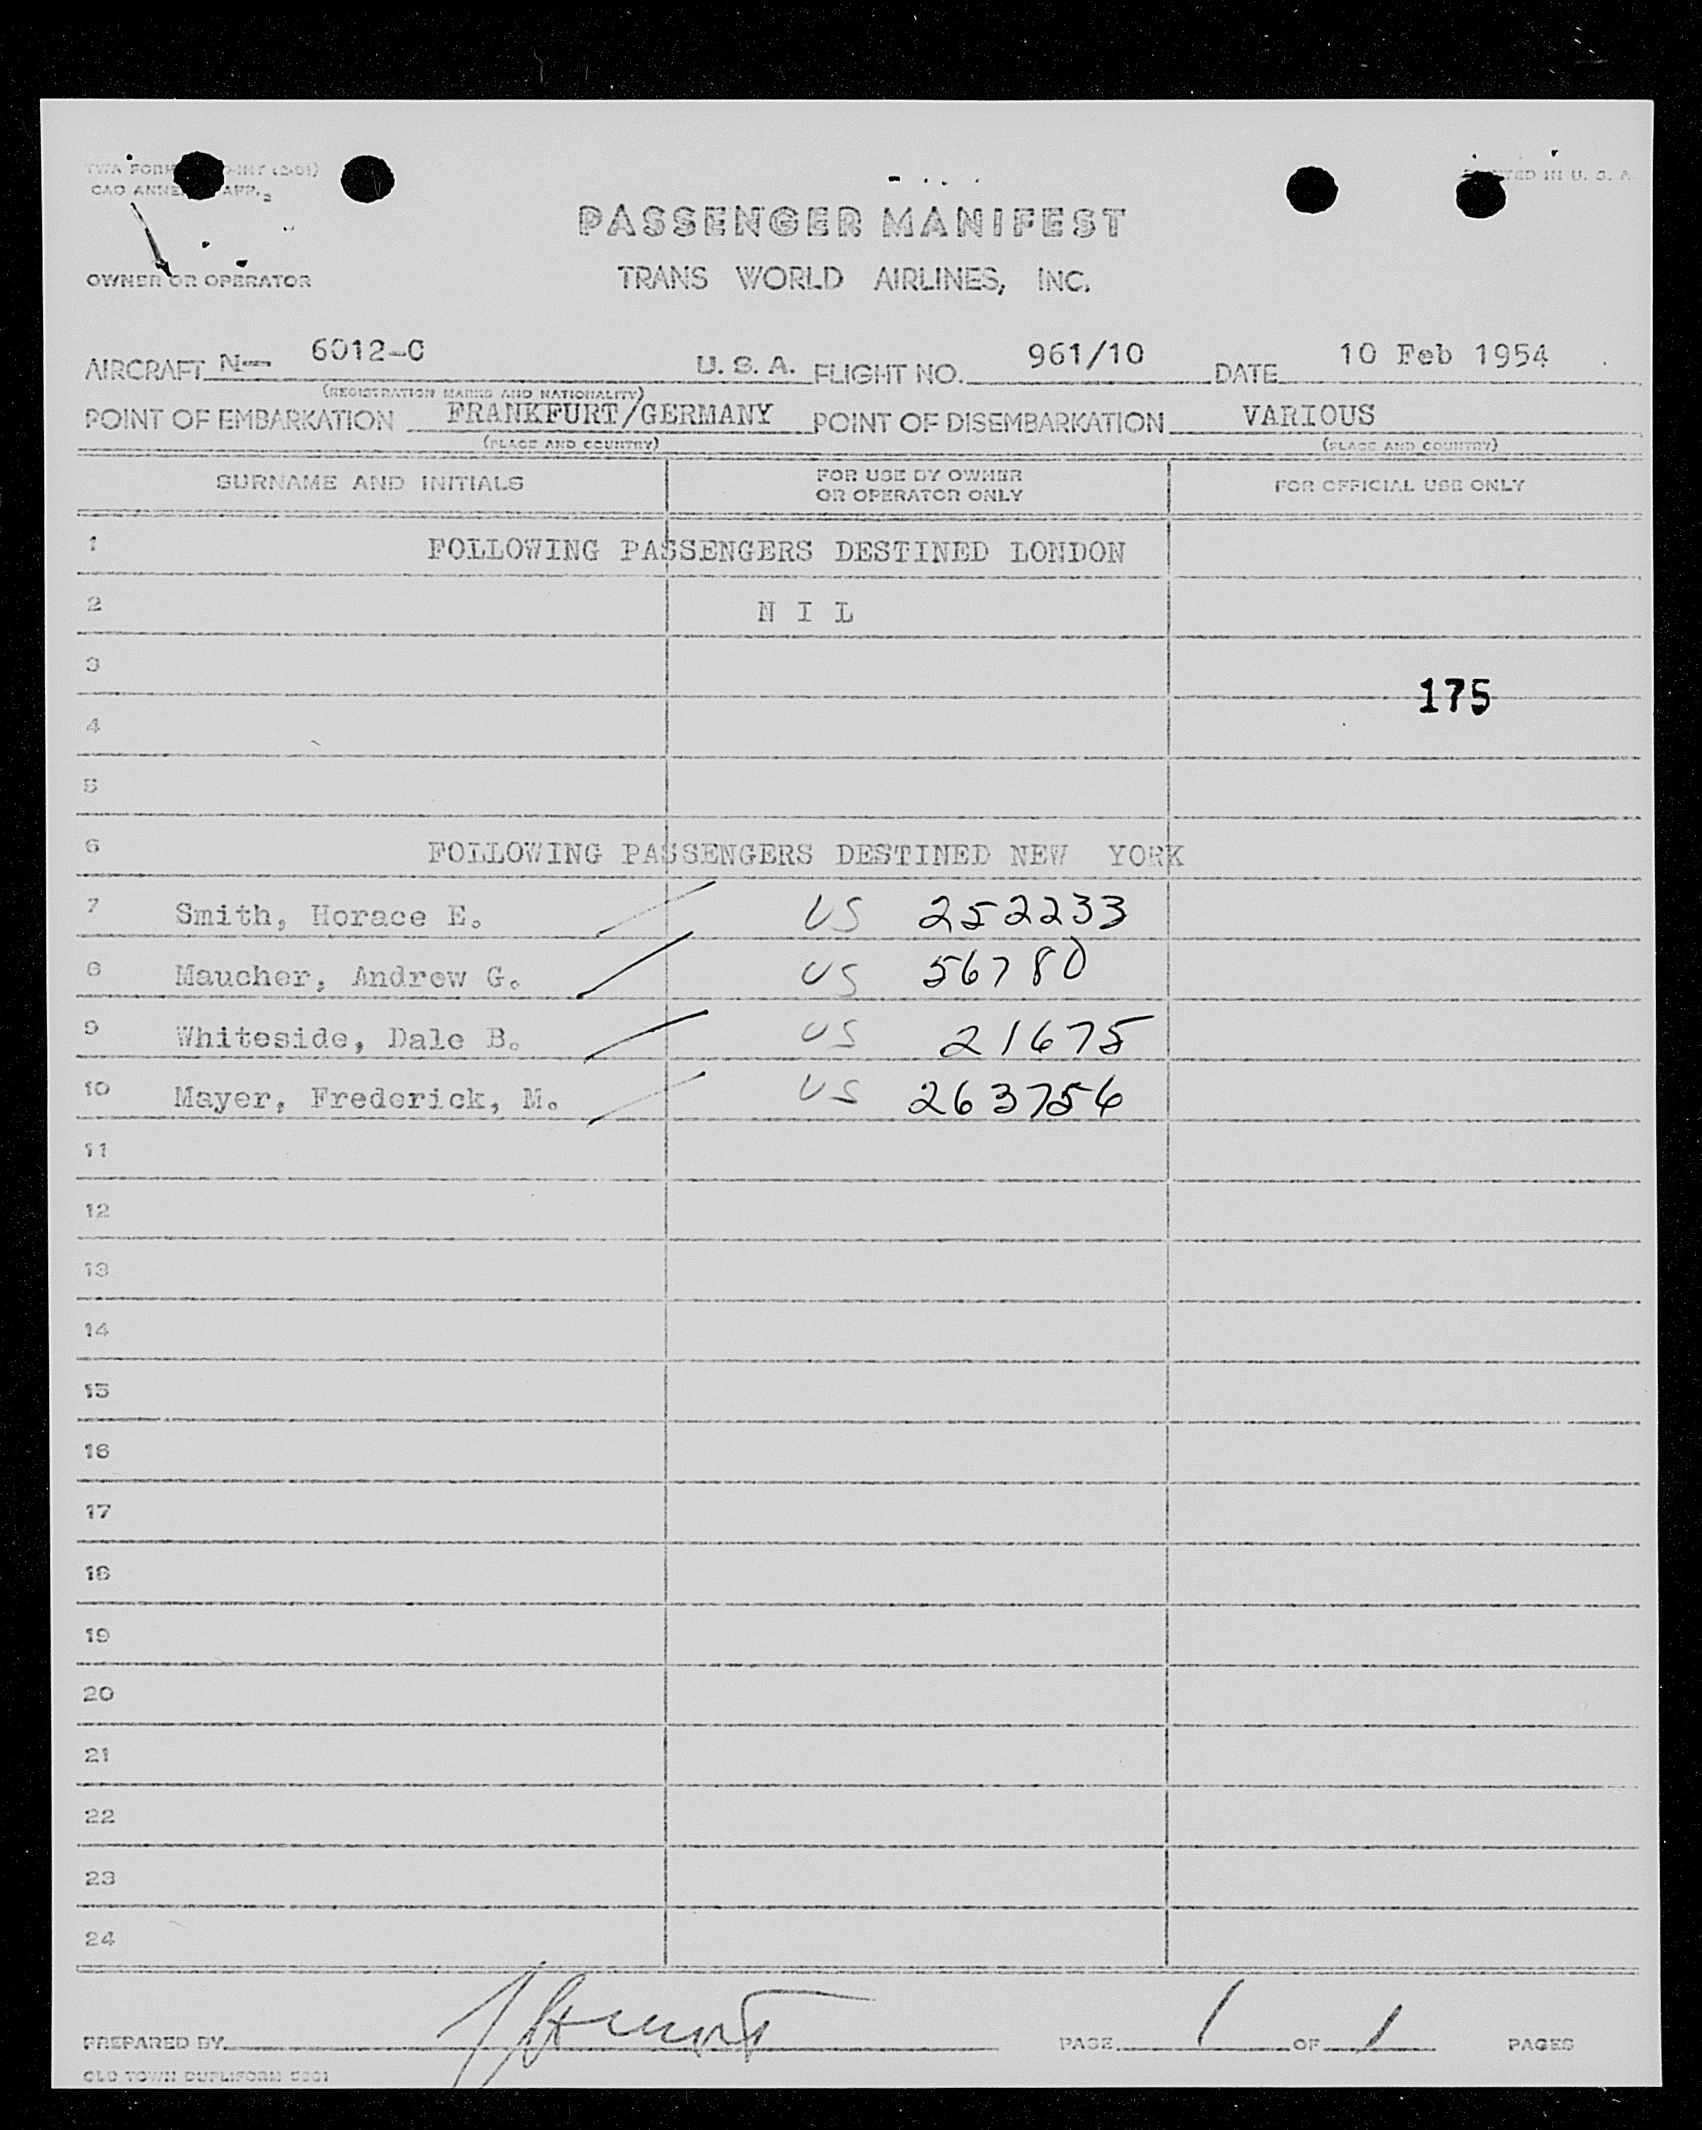 PRINTED IN U. S. A.
PASSENGER MANIFEST
OWNER OR OPERATOR
TRANS WORLD AIRLINES, INC.
AIRCRAFT N— 6012-C U. S. A. FLIGHT NO. 961/10 DATE 10 Feb 1954
(REGISTRATION MARKS AND NATIONALITY)
POINT OF EMBARKATION FRANKFURT/GERMANY POINT OF DISEMBARKATION VARIOUS
(PLACE AND COUNTRY) (PLACE AND COUNTRY)
SURNAME AND INITIALS FOR USE BY OWNER OR OPERATOR ONLY FOR OFFICIAL USE ONLY
1 FOLLOWING PASSENGERS DESTINED LONDON
2 N I L
3
175
4
5
6 FOLLOWING PASSENGERS DESTINED NEW YORK
7 Smith, Horace E. US 252233
8 Maucher, Andrew G. US 56780
9 Whiteside, Dale B. US 21675
10 Mayer, Frederick, M. US 263756
11
12
13
14
15
16
17
18
19
20
21
22
23
24
PREPARED BY PAGE 1 OF 1 PAGES
OLD TOWN DUPLIFORM 5301